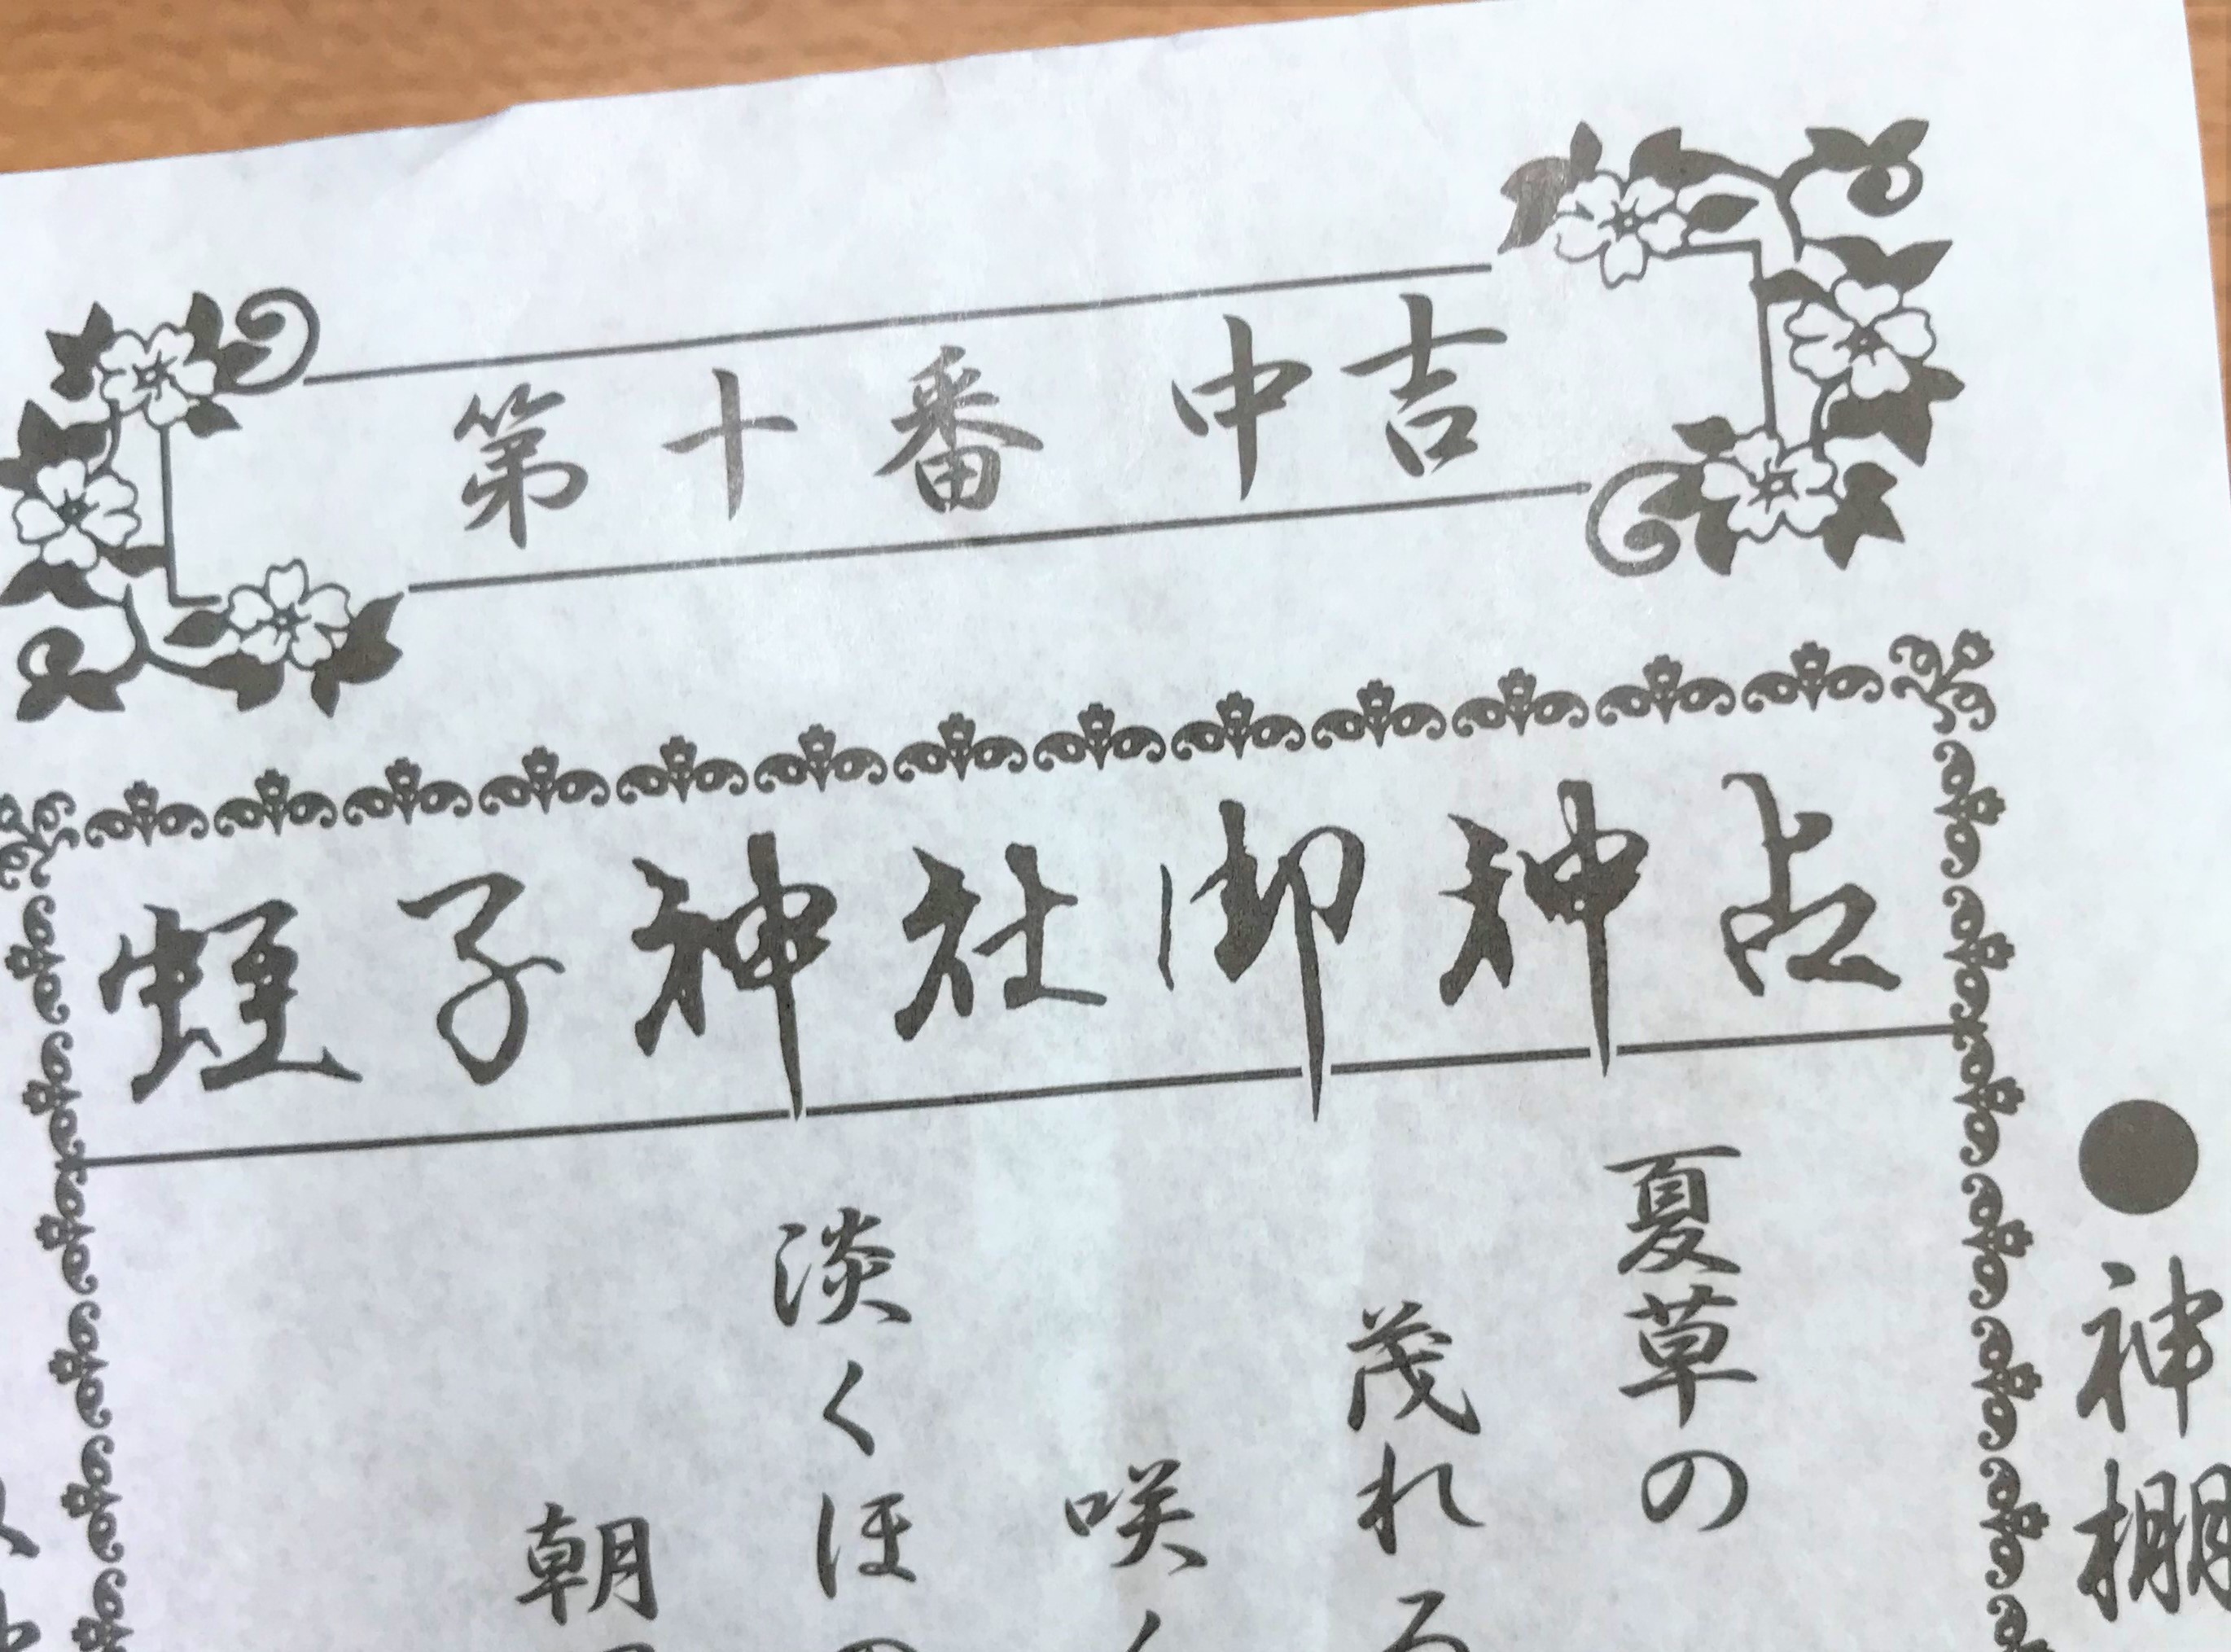 第十番 中吉
蛭子神社御神占
夏草の
茂れる
咲く
淡くほの
朝
●神棚